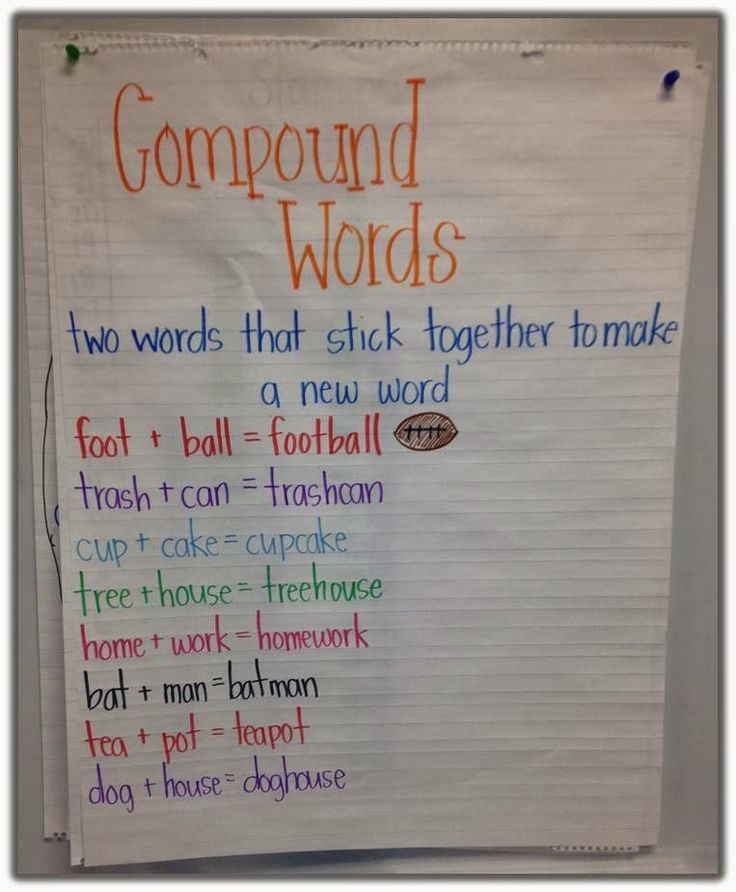 Compound
Words
two words that stick together to make
a new word
foot + ball = football
trash + can = trashcan
cup + cake = cupcake
tree + house = treehouse
home + work = homework
bat + man = batman
tea + pot = teapot
dog + house = doghouse